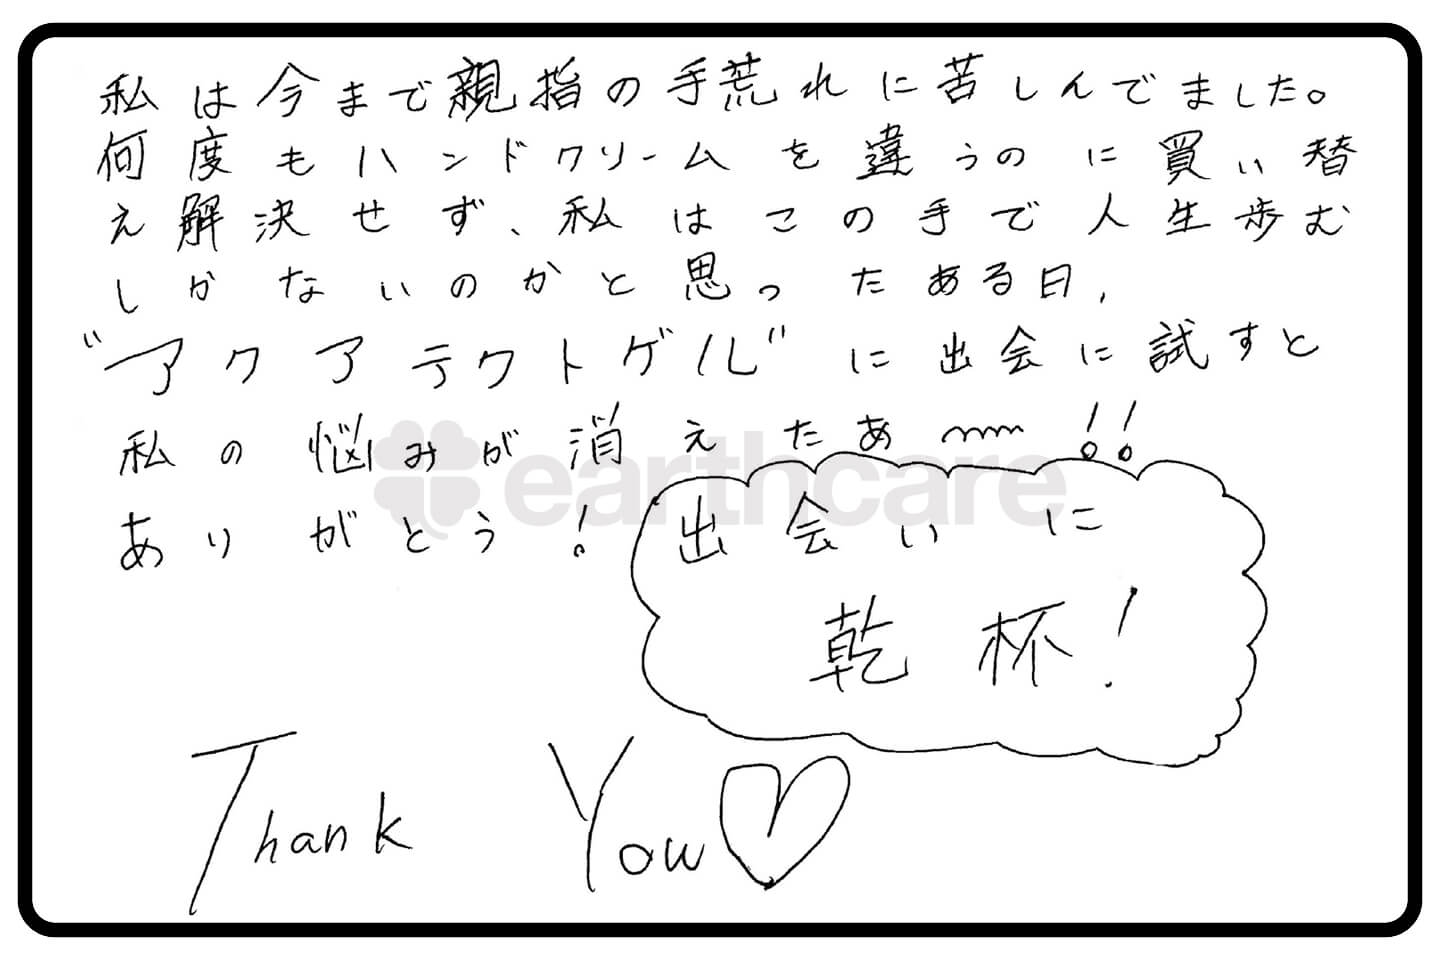 私は今まで親指の手荒れに苦しんでました。
何度もハンドクリームを違うのに買い替
え解決せず、私はこの手で人生歩む
しかないのかと思ったある日,
"アクアテクトゲル"に出会に試すと
私の悩みが消えたあ〰!!
ありがとう!
earthcare
出会いに
乾杯!
Thank You♡